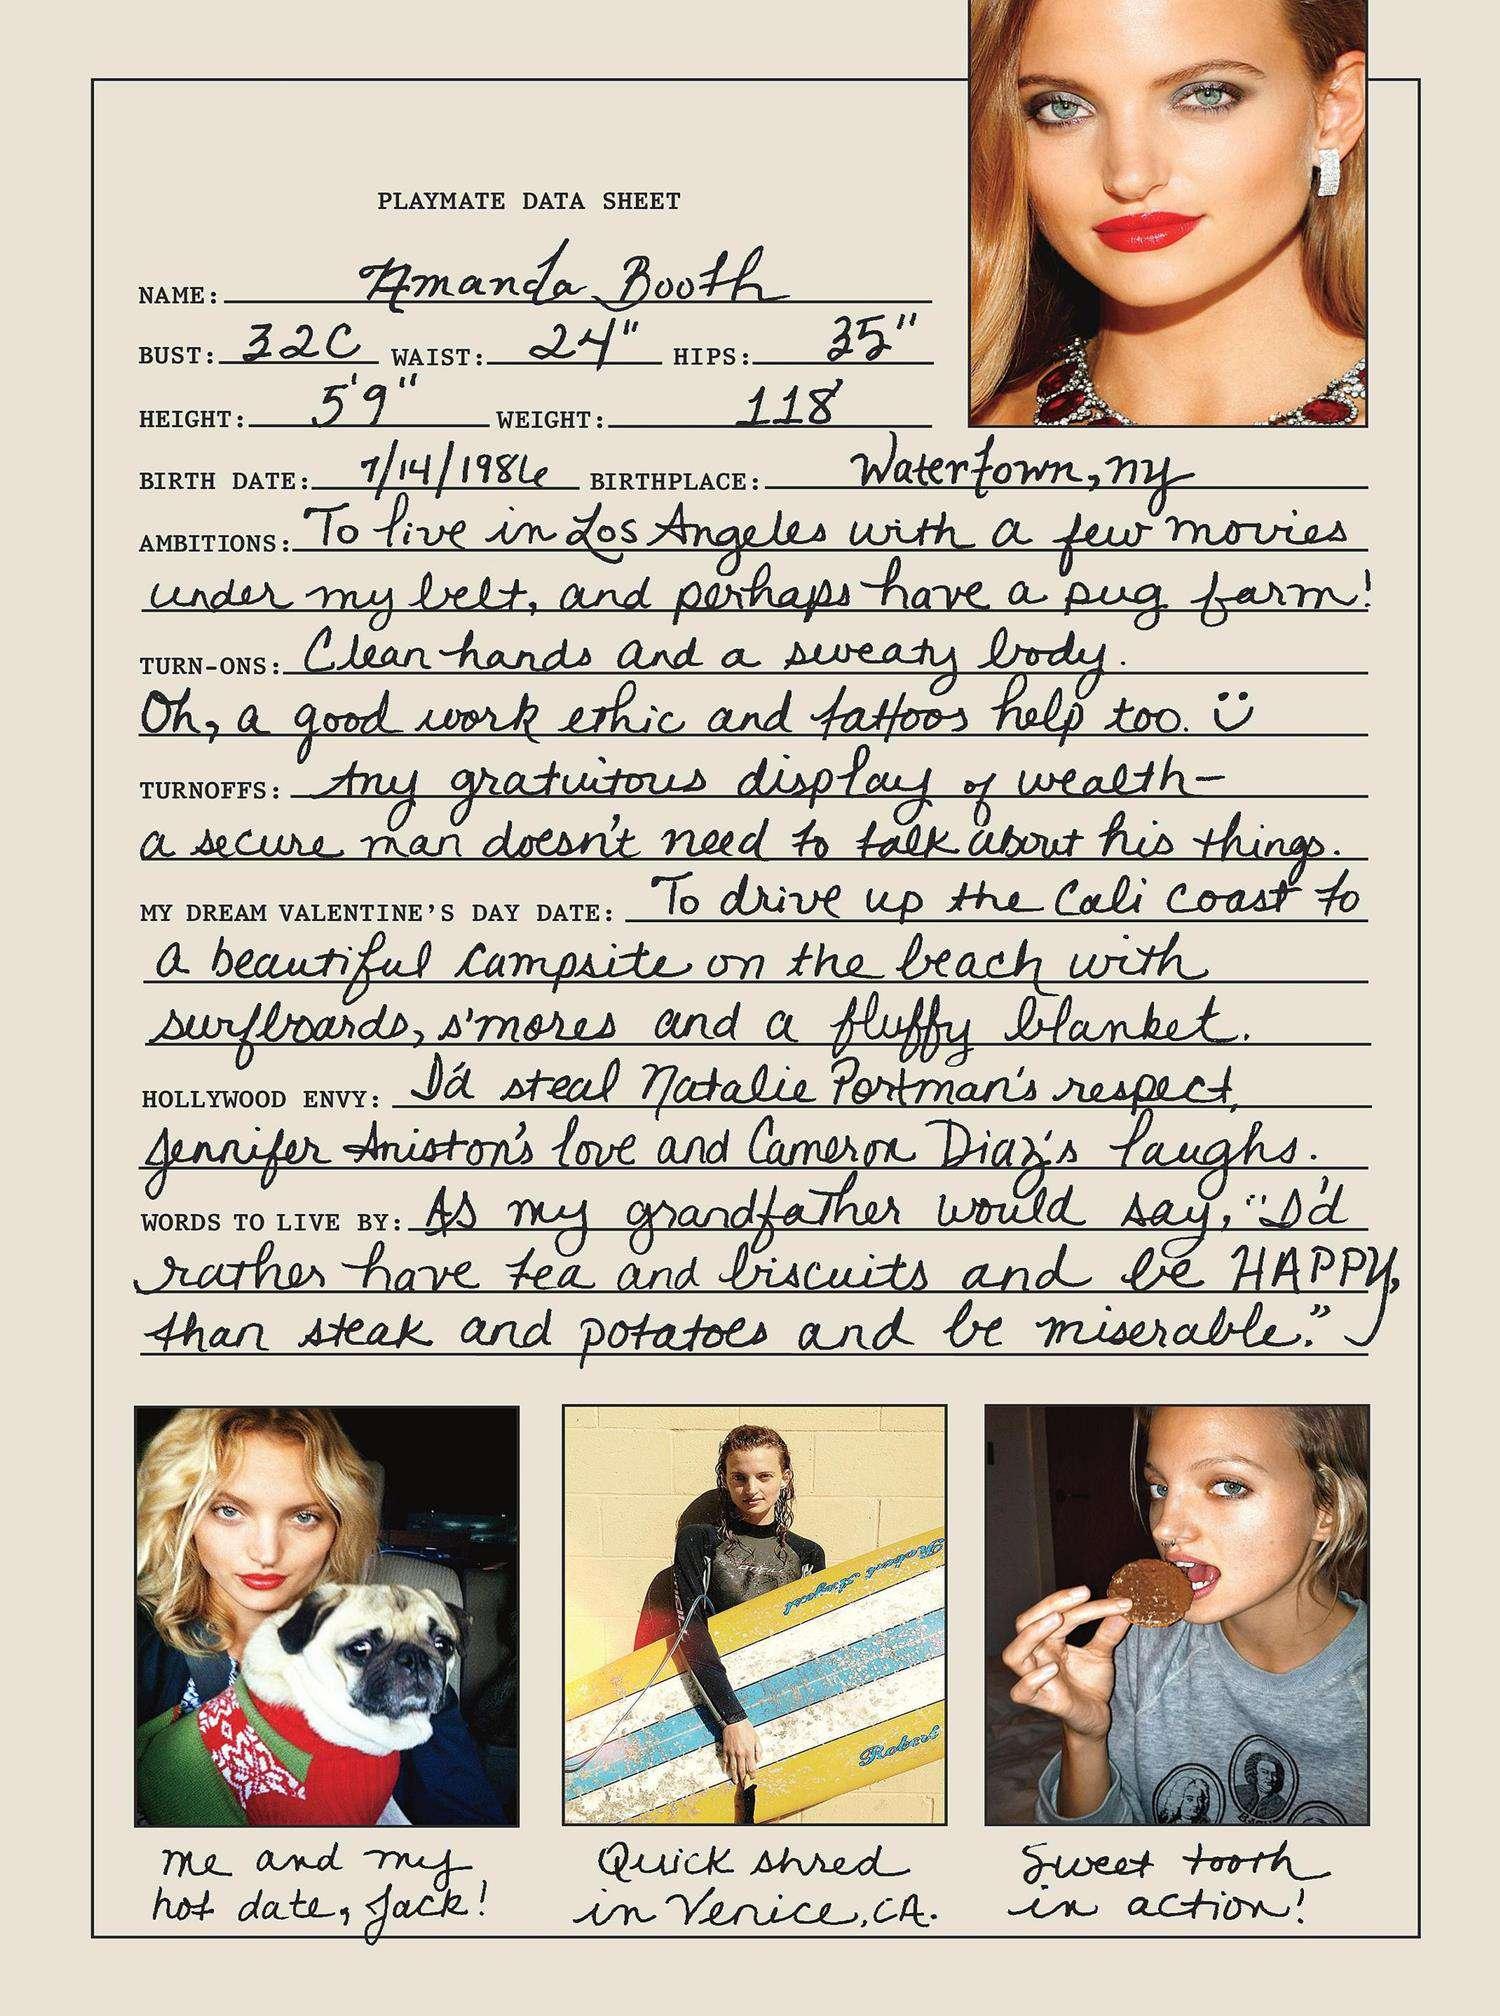 PLAYMATE DATA SHEET
NAME: Amanda Booth
BUST: 32C WAIST: 24" HIPS: 35"
HEIGHT: 5'9" WEIGHT: 118
BIRTH DATE: 7/14/1986 BIRTHPLACE: Watertown, NY
AMBITIONS: To live in Los Angeles with a few movies
under my belt, and perhaps have a pug farm!
TURN-ONS: Clean hands and a sweaty body.
Oh, a good work ethic and tattoos help too. Ü
TURNOFFS: Any gratuitous display of wealth—
a secure man doesn't need to talk about his things.
MY DREAM VALENTINE'S DAY DATE: To drive up the Cali coast to
a beautiful campsite on the beach with
surfboards, s'mores and a fluffy blanket.
HOLLYWOOD ENVY: I'd steal Natalie Portman's respect,
Jennifer Aniston's love and Cameron Diaz's laughs.
WORDS TO LIVE BY: As my grandfather would say, "I'd
rather have tea and biscuits and be HAPPY,
than steak and potatoes and be miserable."
Robert August
Robert
me and my
hot date, Jack!
Quick shred
in Venice, CA.
Sweet tooth
in action!